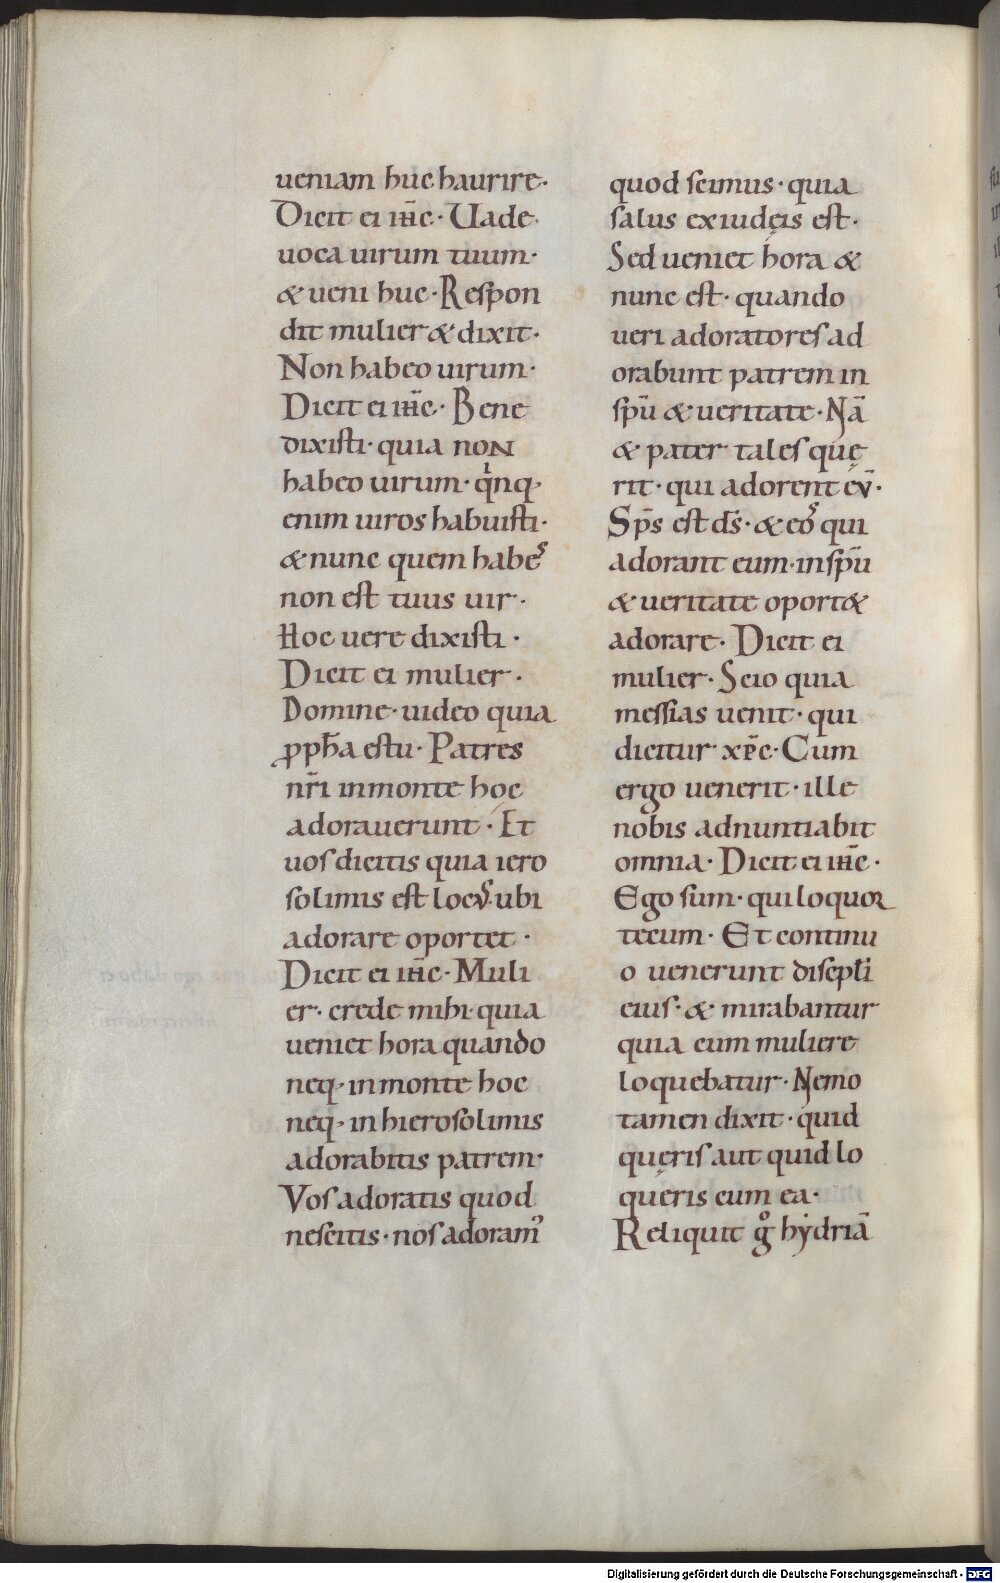 ueniam huc haurire·
Dicit ei ihc̄· Uade
uoca uirum tuum·
& ueni huc· Respon
dit mulier & dixit·
Non habeo uirum·
Dicit ei ihc̄· Bene
dixisti· quia non
habeo uirum· qͥnq·
enim uiros habuisti·
& nunc quem habes
non est tuus uir·
Hoc uere dixisti·
Dicit ei mulier·
Domine· uideo quia
ꝓph̄a es tu· Patres
nr̄i in monte hoc
adorauerunt· Et
uos dicitis quia iero
solimis est locus· ubi
adorare oportet·
Dicit ei ihc̄· Muli
er· crede mihi quia
ueniet hora quando
neq· in monte hoc
neq· in hierosolimis
adorabitis patrem·
Vos adoratis quod
nescitis· nos adoramꝰ
quod scimus· quia
salus ex iudęis est·
Sed ueniet hora &
nunc est· quando
ueri adoratores ad
orabunt patrem in
sp̄u & ueritate· Nā
& pater tales quę
rit· qui adorent eū·
Sp̄s est ds̄· & eos qui
adorant eum· in sp̄u
& ueritate oport&
adorare· Dicit ei
mulier· Scio quia
messias uenit· qui
dicitur xp̄c· Cum
ergo uenerit· ille
nobis adnuntiabit
omnia· Dicit ei ihc̄·
Ego sum· qui loquor
tecum· Et continu
o uenerunt discipl̄i
eius· & mirabantur
quia cum muliere
loquebatur· Nemo
tamen dixit· quid
quęris aut quid lo
queris cum ea·
Reliquit gͦ hẏdriā
Digitalisierung gefördert durch die Deutsche Forschungsgemeinschaft - DFG